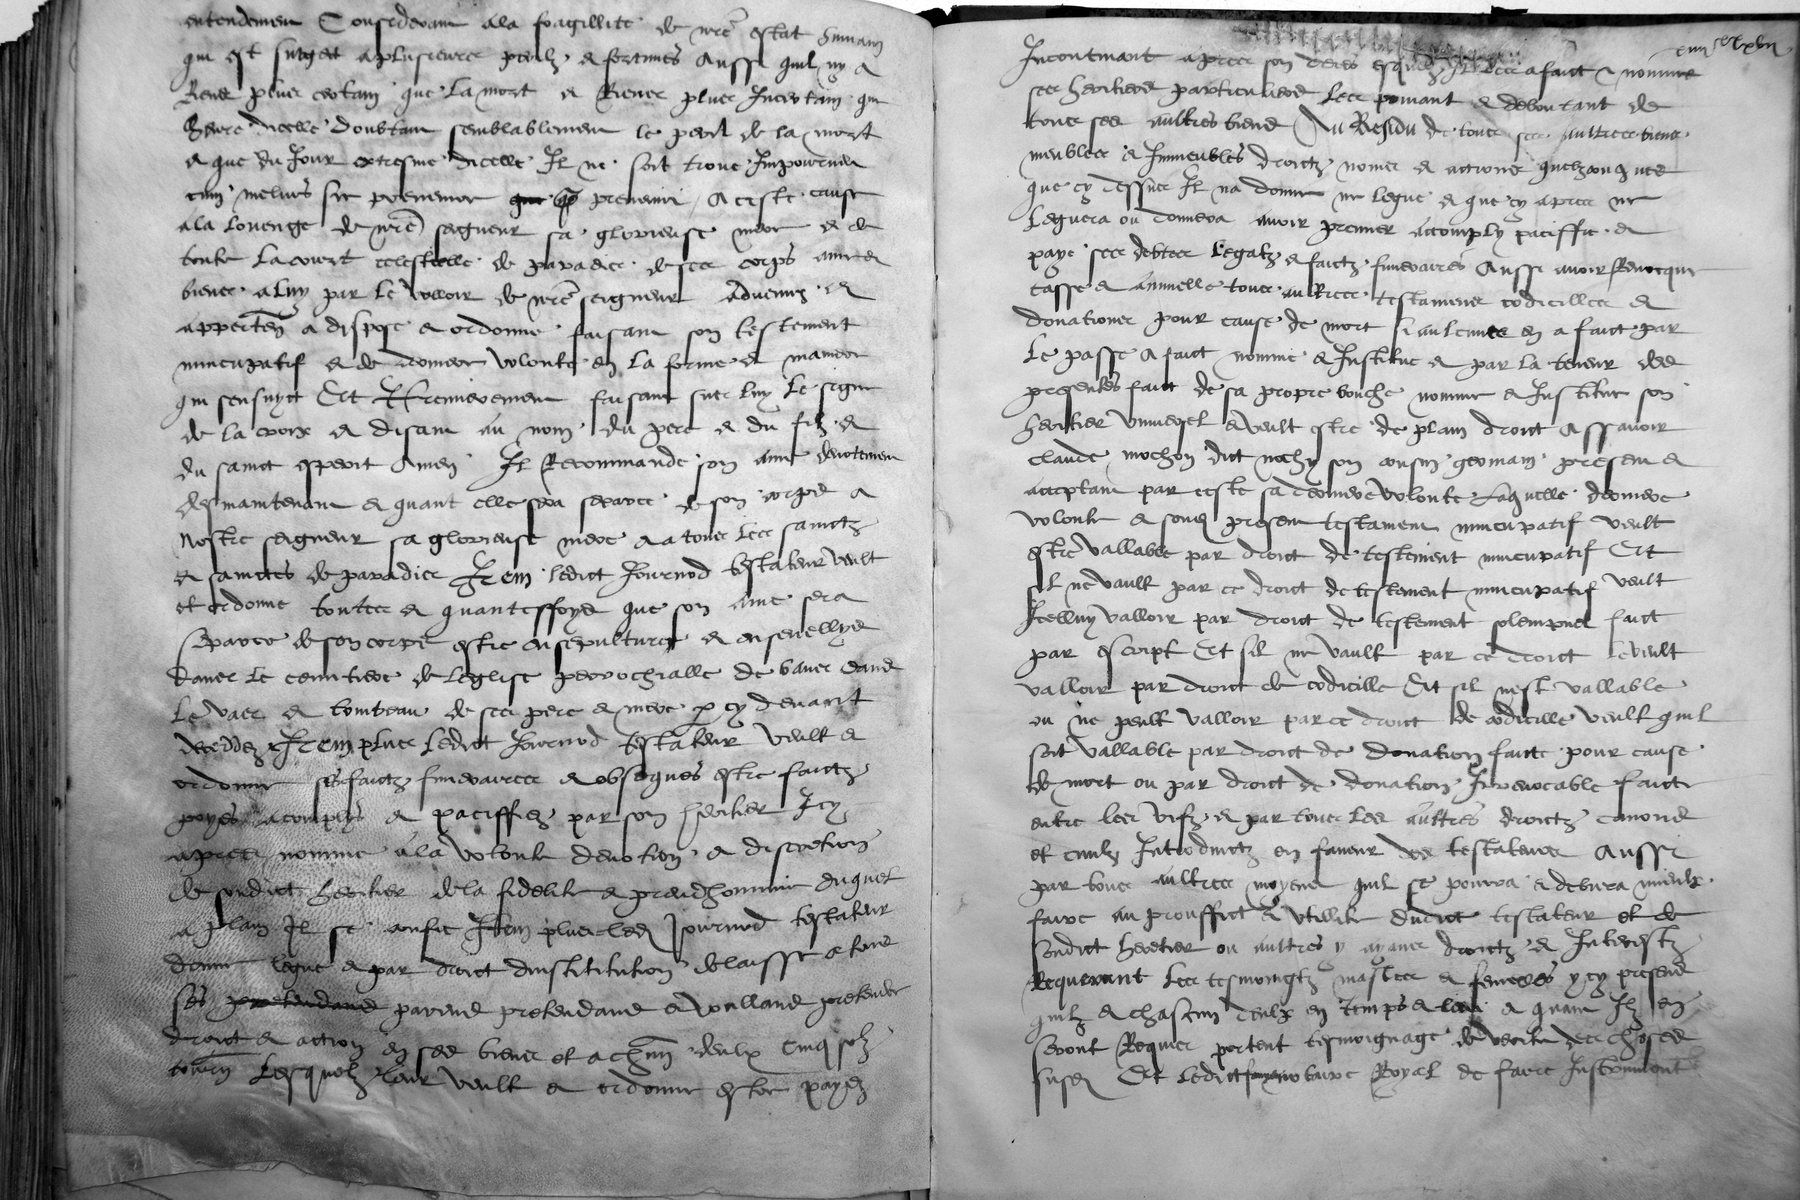 entendemen Consideram a la fragillite de nre estat humain
qui est subgect a plusieurs perilz & fortunes Aussi quil ny a
Riens plus certain que La mort et Riens plus Incertain que
lheure dicelle doubtam semblablemen le peril de la mort
& que du Jour extresme dicelle Il ne soit trouve Impourveu
prevenir A ceste cause
a la louenge de nre seigneur sa glorieuse mere & de
toute La court celestielle de paradis de ses corps ame &
biens a luy par le voloir de nre seigneur Advenuz &
apperten a dispose & ordonne faisam son testement
nuncupatif & de derniere volonte en la forme & maniere
qui sensuyt Et premierement faisam sur luy Le signe
de la croix & disam au nom du pere & du filz &
du sainct esperit Amen Il Recommande son ame devotemen
des maintenam & quant elle sera separee de son corps a
Nostre seigneur sa glorieuse mere & a tous les sainctz
& sainctes de paradis Item ledict Journod testateur veult
et ordonne toutes & quantesfoys que son ame sera
separee de son corps estre ensepulture & ensevellye
dans le cemitiere de leglise parrochialle de
Le vaes & tombeau de ses pere & mere cy devant
Item plus Ledict Journod testateur veult &
ordonne ses faictz funeraires & obseques estre faictz
payes acomplys & paciffiez par son heritier Icy
apres nomme a la volonte devotion & discretion
de sondict heritier de la fidelite & preudhommie duquel
a plain Il se confie Item plus led Journod testateur
donne legue & par droict dinstitution delaisse a tous
ses pretendans parens pretendans & voullans pretendre
droict & action en ses biens et a chun deulx cinq solz
tourn Lesquelz leur veult & ordonne estre payez
Incontinant apres son deces esquelz Il les a faict & nomme
ses heritiers particuliers Les privant & deboutant de
tous ses aultres biens Au Residu de tous ses aultres biens
meubles & Immeubles droictz noms & actions quelzconques
que cy dessus Il na donne ne legue & que cy apres ne
Leguera ou donnera avoir premier accomply paciffie &
paye ses debtes Legatz & faictz funeraires Aussi avoir Revocque
casse & annulle tous aultres testamens codicilles &
donations pour cause de mort si aulcunes en a faict par
Le passe A faict nomme & Institue & par la teneur des
presentes faict de sa propre bouche nomme & Institue son
heritier universel & veult estre de plain droict Assavoir
claude mochon dict mochy son cousin germain present &
acceptam par ceste sa derniere volonte Laquelle derniere
volonte & son present testamen nuncupatif veult
estre vallable par droict de testement nuncupatif Et
sil ne vault par ce droict de testement nuncupatif veult
Icelluy valloir par droict de testement solempnel faict
par escript Et sil ne vault par ce droict le veult
valloir par droict de codicille Et sil nest vallable
ou ne peult valloir par ce droict de codicille veult quil
soit vallable par droict de donation faicte pour cause
de mort ou par droict de donation Irrevocable faicte
entre les vifz & par tous les aultres droictz canons
et civilz Introduictz en faveur des testateurs Aussi
par tous aultres moyens quil se pourra & debvra mieulx
faire au prouffict & utillite dudict testateur et de
sondict heretier ou aultres y ayans droictz & Interestz
Requerant Les tesmoingtz masles & femelles y cy presens
quilz & chascun deulx en temps & lieu & quant Ilz en
seront Requier portent tesmoignage de verite des choses
susd Et Ledict notaire Royal de faire Instrument